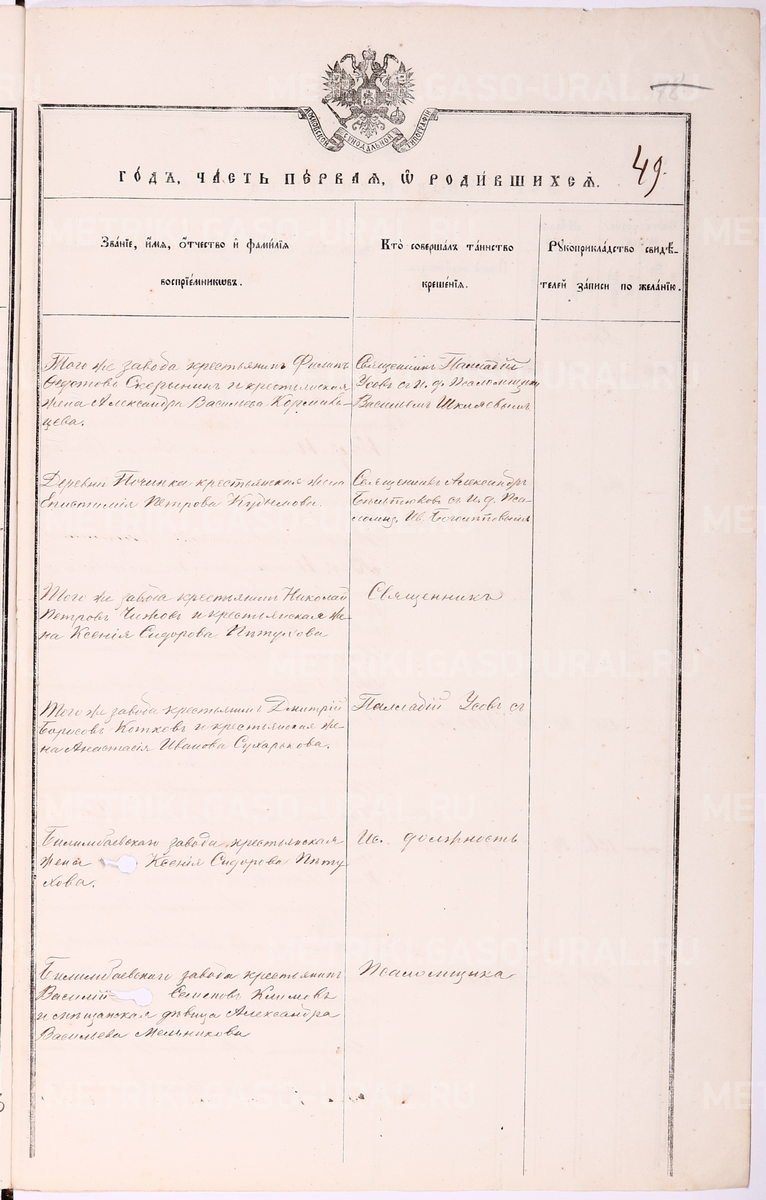 METRIKI.GASO-URAL.RU
МОСКОВСКОЙ СѴНОДАЛЬНОЙ ТИПОГРАФІИ
78
49.
ГО́ДЪ, ЧА́СТЬ ПЕ́РВАЯ, Ѿ РОДИ́ВШИХСЯ.
Зва́нїе, и́мя, о́тчество и фами́лїя
воспрїе́мникѡвъ.
Кто̀ соверша́лъ та́инство
креще́нїя.
Рꙋкоприкла́дство свидѣ́-
телей за́писи по жела́нїю.
Того же завода крестьянинъ Филипъ
Федотовъ Скорынинъ и крестьянская
жена Александра Васильева Кормиль-
цева.
Священникъ Палладій
Усовъ съ и. д. псаломщика
Васильемъ Шкляевымъ
Деревни Починка крестьянская жена
Епистимія Петрова Кудымова.
Священникъ Александръ
съ и. д. Пса-
ломщ. Ив.
Того же завода крестьянинъ Николай
Петровъ Чижовъ и крестьянская же-
на Ксенія Сидорова Пѣтухова
Священникъ
Того же завода крестьянинъ Дмитрій
Борисовъ Котковъ и крестьянская же-
на Анастасія Иванова Сухарькова.
Палладій Усовъ съ
Билимбаевскаго завода крестьянская
жена Ксенія Сидорова Пѣту
хова.
Ис. должность
Билимбаевскаго завода крестьянинъ
Василій Семеновъ Климовъ
и мѣщанская дѣвица Александра
Васильева Мельникова
Псаломщика